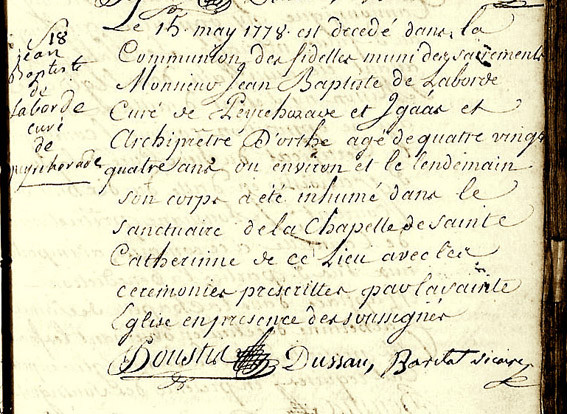 18
jean
Baptiste
de
Laborde
curé
de
peyrehorade
Le 15. may 1778. est decedé dans la
Communion des fidelles muni des sacrements
Monsieur Jean Baptiste de Laborde
Curé de Peyrehorade et Igaas et
Archipretré D'orthe agé de quatre vingt
quatre ans ou environ et le lendemain
son corps a été inhumé dans le
sanctuaire de la Chapelle de sainte
Catherinne de ce Lieu avec les
ceremonies prescrittes par la sainte
Eglise en presence des soussignés
Dussau, Baritat vicaire